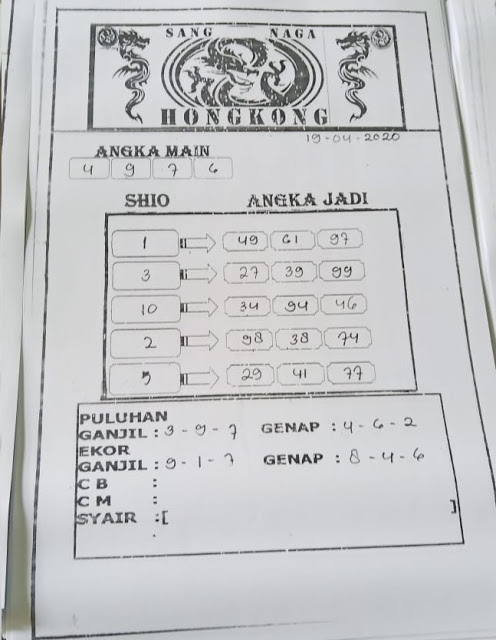 SANG NAGA
HONGKONG
19-04-2020
ANGKA MAIN
4 9 7 6
SHIO ANGKA JADI
1 49 61 97
3 27 39 99
10 34 94 46
2 98 38 74
5 29 41 77
PULUHAN
GANJIL : 3-9-7 GENAP : 4-6-2
EKOR
GANJIL : 9-1-7 GENAP : 8-4-6
C B :
C M :
SYAIR :[ ]